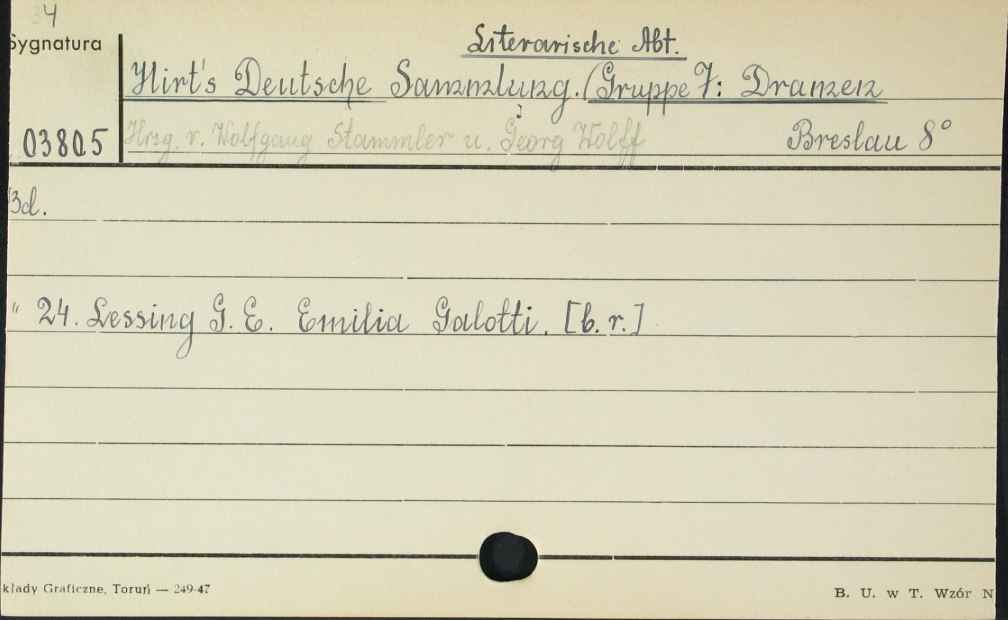 34
Sygnatura
Literarische Abt.
Hirt's Deutsche Sammlung. (Gruppe 7: Dramen
03805
Hrsg. v. Wolfgang Stammler u. Georg Wolff
Breslau 8°
Bd.
" 24. Lessing G. E. Emilia Galotti. [b. r.]
kłady Graficzne, Toruń — 249-47
B. U. w T. Wzór N